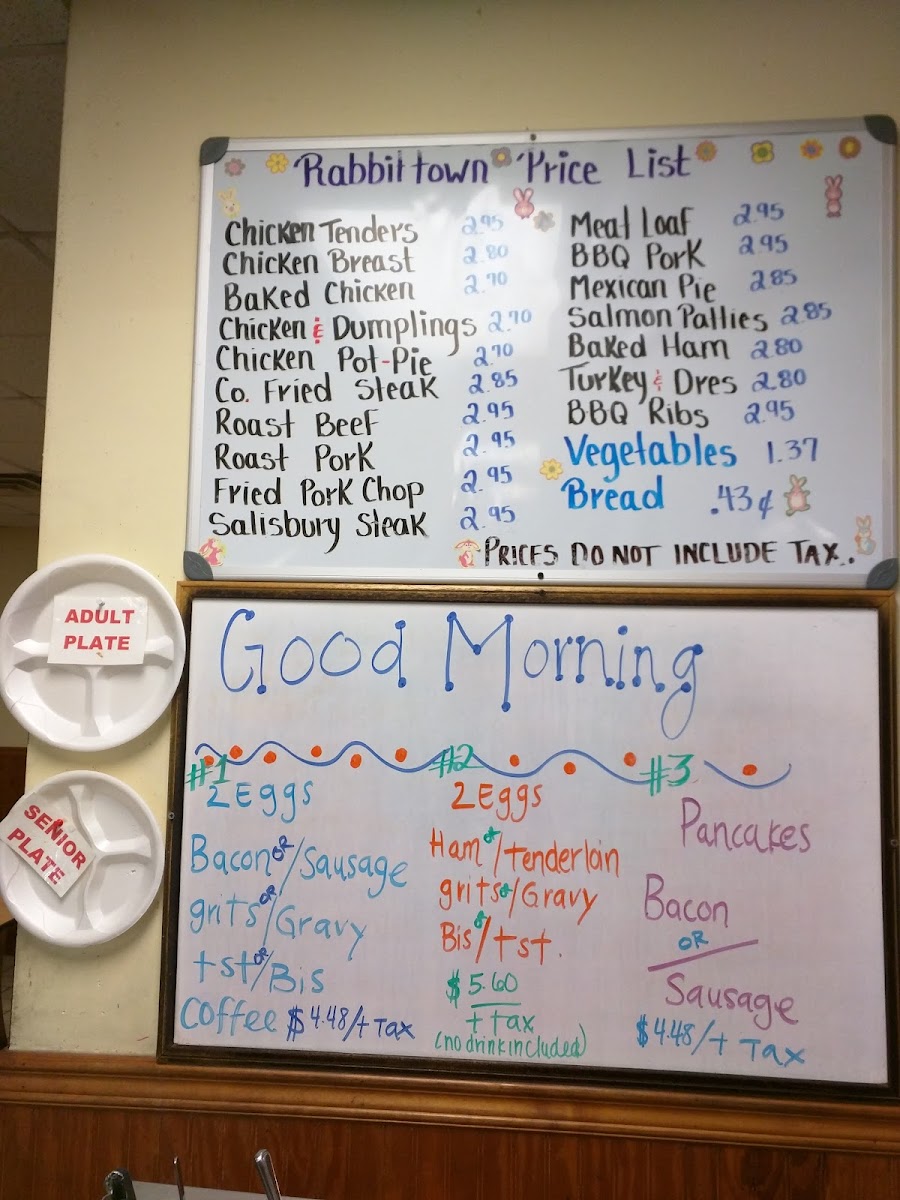 Rabbittown Price List
Chicken Tenders 2.95
Chicken Breast 2.80
Baked Chicken 2.70
Chicken & Dumplings 2.70
Chicken Pot-Pie 2.70
Co. Fried Steak 2.85
Roast Beef 2.95
Roast Pork 2.95
Fried Pork Chop 2.95
Salisbury Steak 2.95
Meat Loaf 2.95
BBQ Pork 2.95
Mexican Pie 2.85
Salmon Patties 2.85
Baked Ham 2.80
Turkey & Dres 2.80
BBQ Ribs 2.95
Vegetables 1.37
Bread .43¢
PRICES DO NOT INCLUDE TAX.
ADULT
PLATE
SENIOR
PLATE
Good Morning
#1
2 Eggs
Bacon or/Sausage
grits or/Gravy
tst or/Bis
Coffee $4.48/+ Tax
#2
2 Eggs
Ham or/tenderloin
grits or/Gravy
Bis or/tst.
$5.60
+ tax
(no drink included)
#3
Pancakes
Bacon
OR
Sausage
$4.48/+ Tax